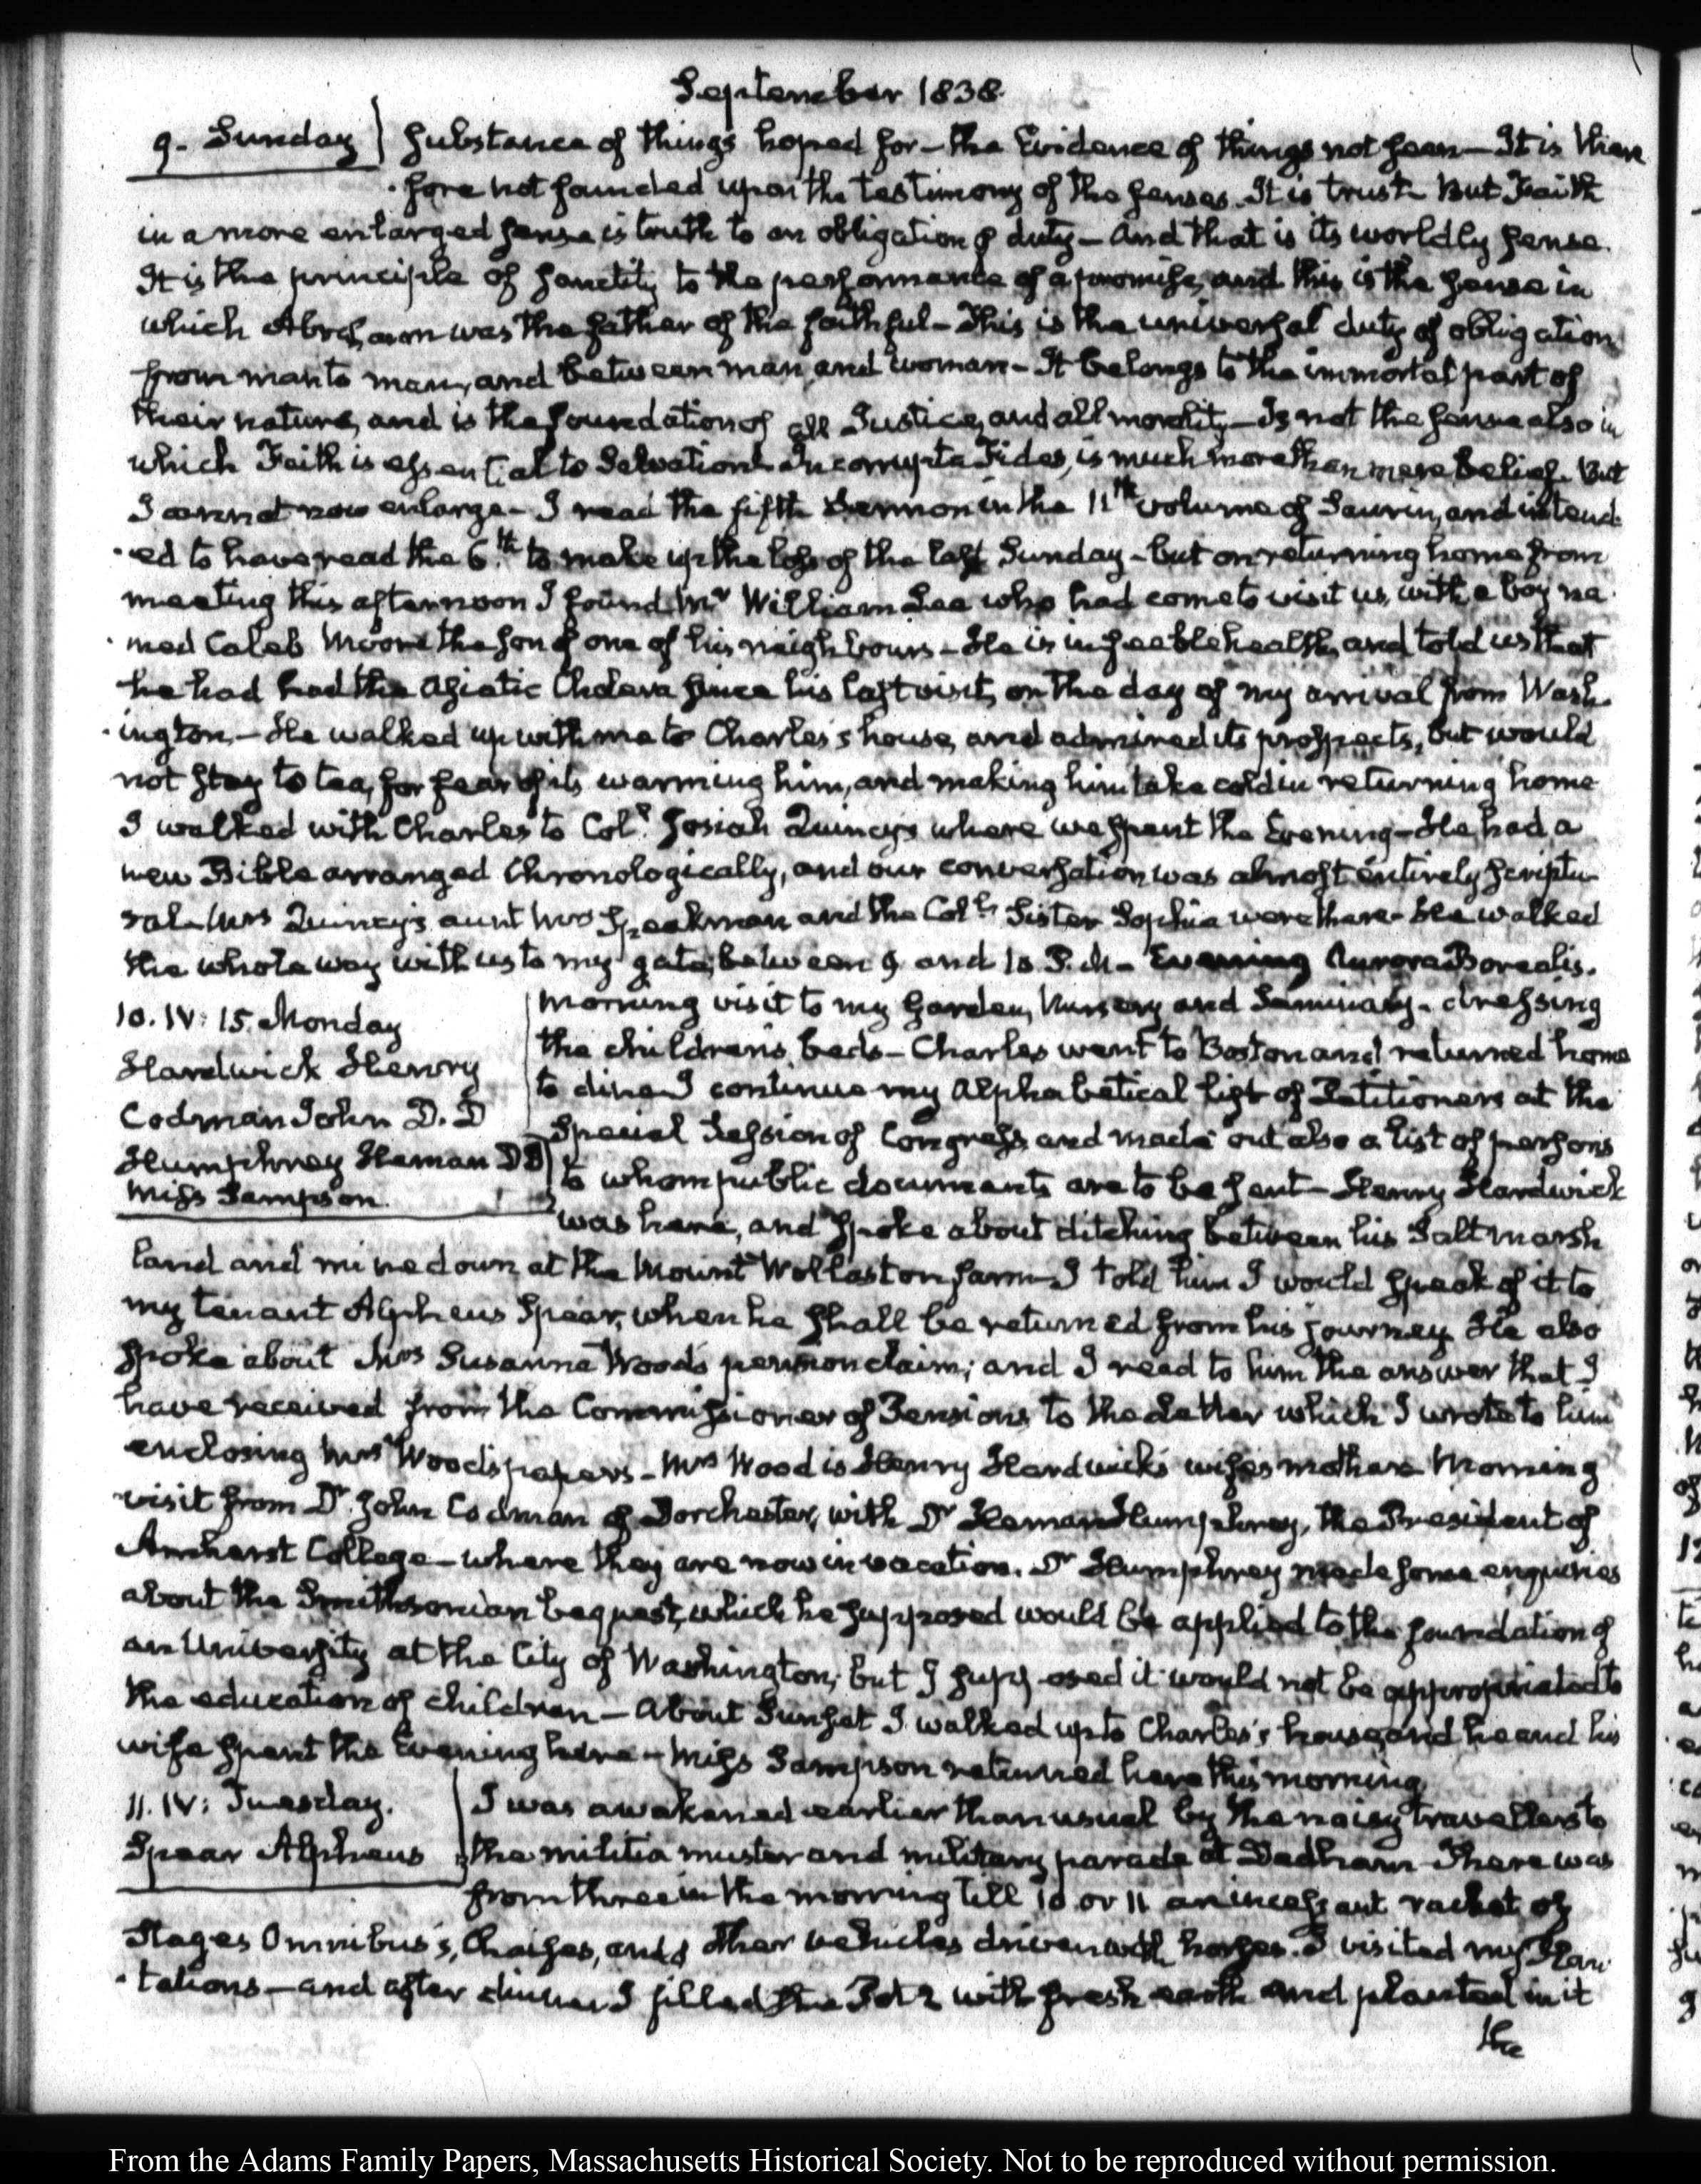 September 1838.
9. Sunday } Substance of things hoped for – the Evidence of things not seen – It is there
fore not founded upon the testimony of the senses. It is trust – But Faith
in a more enlarged sense, is truth to an obligation of duty – And that is its worldly sense.
It is the principle of sanctity to the performance of a promise, and this is the sense in
which Abraham was the father of the faithful – This is the universal duty of obligation
from man to man, and between man and woman – It belongs to the immortal part of
their nature, and is the foundation of all Justice, and all morality – Is not the sense also in
which Faith is essential to Salvation? Incorrupta Fides, is much more than mere belief. But
I cannot now enlarge – I read the fifth Sermon in the 11th volume of Saurin, and intend
ed to have read the 6th to make up the loss of the last Sunday – but on returning home from
meeting this afternoon I found Mr William Lee who had come to visit us, with a boy na
med Caleb Moore the son of one of his neighbours – He is in feeble health, and told us that
he had had the Asiatic Cholera since his last visit, on the day of my arrival from Wash
ington. – He walked up with me to Charles's house, and admired its prospects, but would
not stay to tea, for fear of its warming him, and making him take cold in returning home
I walked with Charles to Coll. Josiah Quincy's where we spent the Evening – He had a
new Bible arranged Chronologically, and our conversation was almost entirely Scriptu
ral – Mrs Quincy's aunt Mrs Speakman and the Coll's Sister Sophia were there – He walked
the whole way with us to my gate, between 9 and 10. P.M – Evening Aurora Borealis.
10. IV: 15. Monday
Hardwick Henry
Codman John D. D
Humphrey Heman DD
Miss Sampson.
Morning visit to my Garden, Nursery and Seminary – dressing
the children's beds – Charles went to Boston and returned home
to dine. I continue my Alphabetical list of Petitioners at the
Special Session of Congress, and made out also a list of persons
to whom public documents are to be sent – Henry Hardwick
was here, and spoke about ditching between his Salt marsh
land and mine down at the Mount Wollaston farm – I told him I would speak of it to
my tenant Alpheus Spear, when he shall be returned from his journey. He also
spoke about Mrs Susanna Wood's pension claim; and I read to him the answer that I
have received from the Commissioner of Pensions, to the Letter which I wrote to him
enclosing Mrs Wood's papers – Mrs Wood is Henry Hardwick's wife's mother – Morning
visit from Dr John Codman of Dorchester, with Dr Heman Humphrey, the President of
Amherst College – where they are now in vacation. Dr Humphrey made some enquiries
about the Smithsonian bequest, which he supposed would be applied to the foundation of
an University at the City of Washington; but I supposed it would not be appropriated to
the education of children – About Sunset I walked up to Charles's house, and he and his
wife spent the Evening here – Miss Sampson returned here this morning.
11. IV: Tuesday.
Spear Alpheus
I was awakened earlier than usual by the noisy travellers to
the militia muster and military parade at Dedham – There was
from three in the morning till 10 or 11 an incessant racket of
Stages Omnibus's, Chaises, and other vehicles driven with horses. I visited my Plan
tations – and after dinner I filled the Pot 2 with fresh earth and planted in it
the
From the Adams Family Papers, Massachusetts Historical Society. Not to be reproduced without permission.